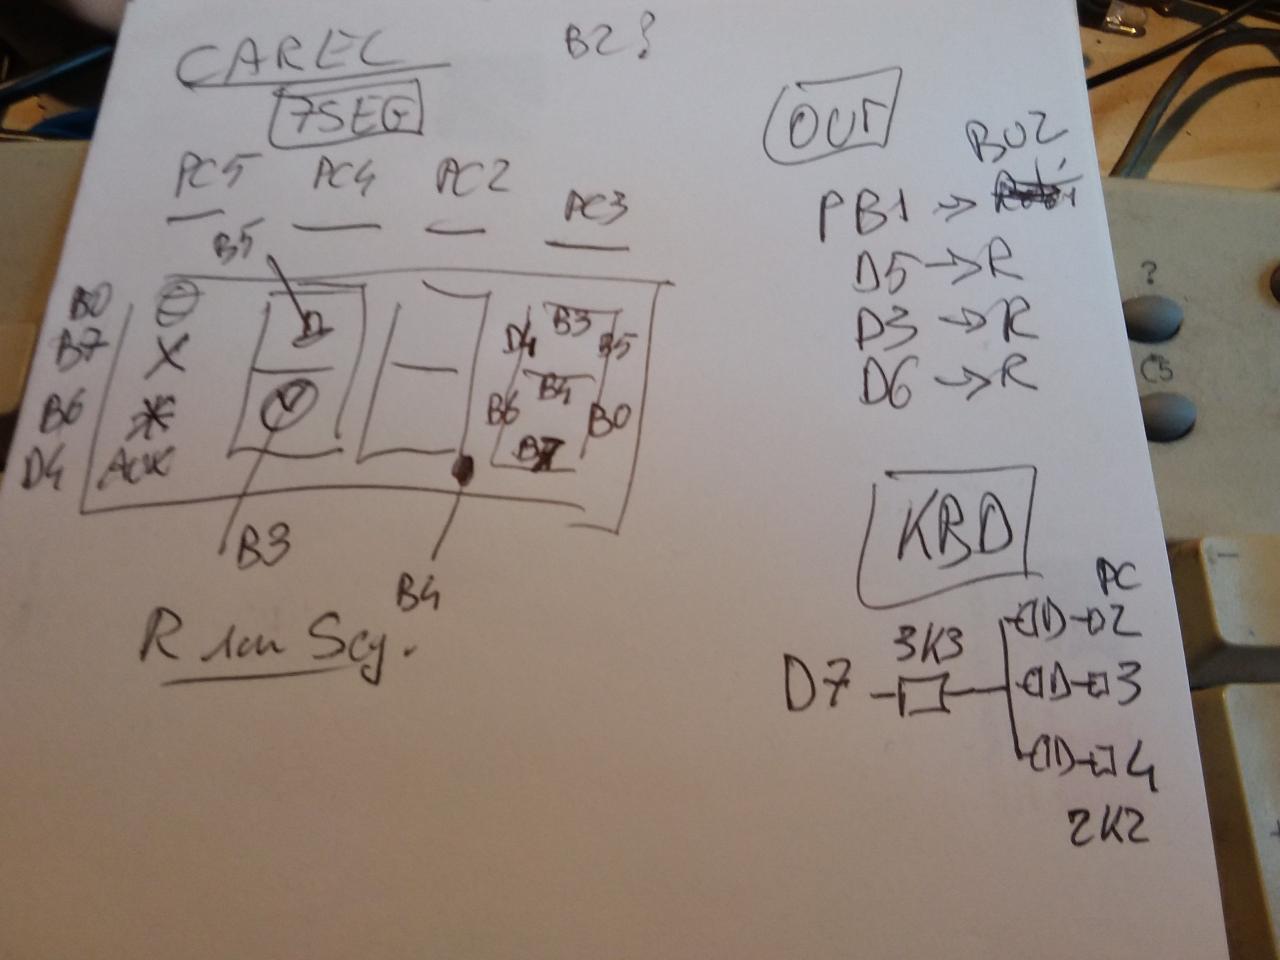 CAREL
B2?
7SEG
PC5 PC4 PC2 PC3
B5
B0
B7 X
B6 *
D4 ACK
D
D4 B3 B5
B4
B6 B0
B7
B3
B4
R
OUT
BUZ
PB1 →
D5 → R
D3 → R
D6 → R
KBD
PC
2
3K3
D7 3
4
2K2
?
C5